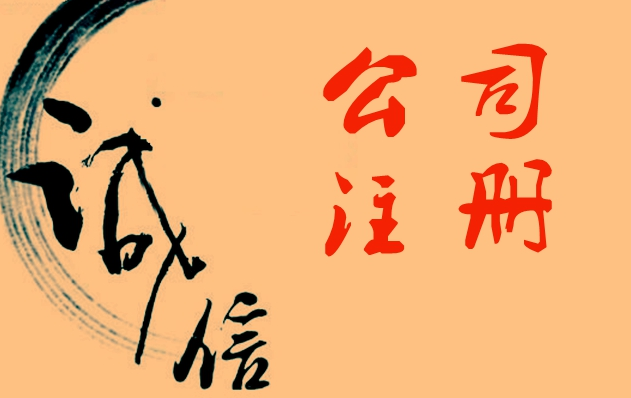 诚信
公司
注册